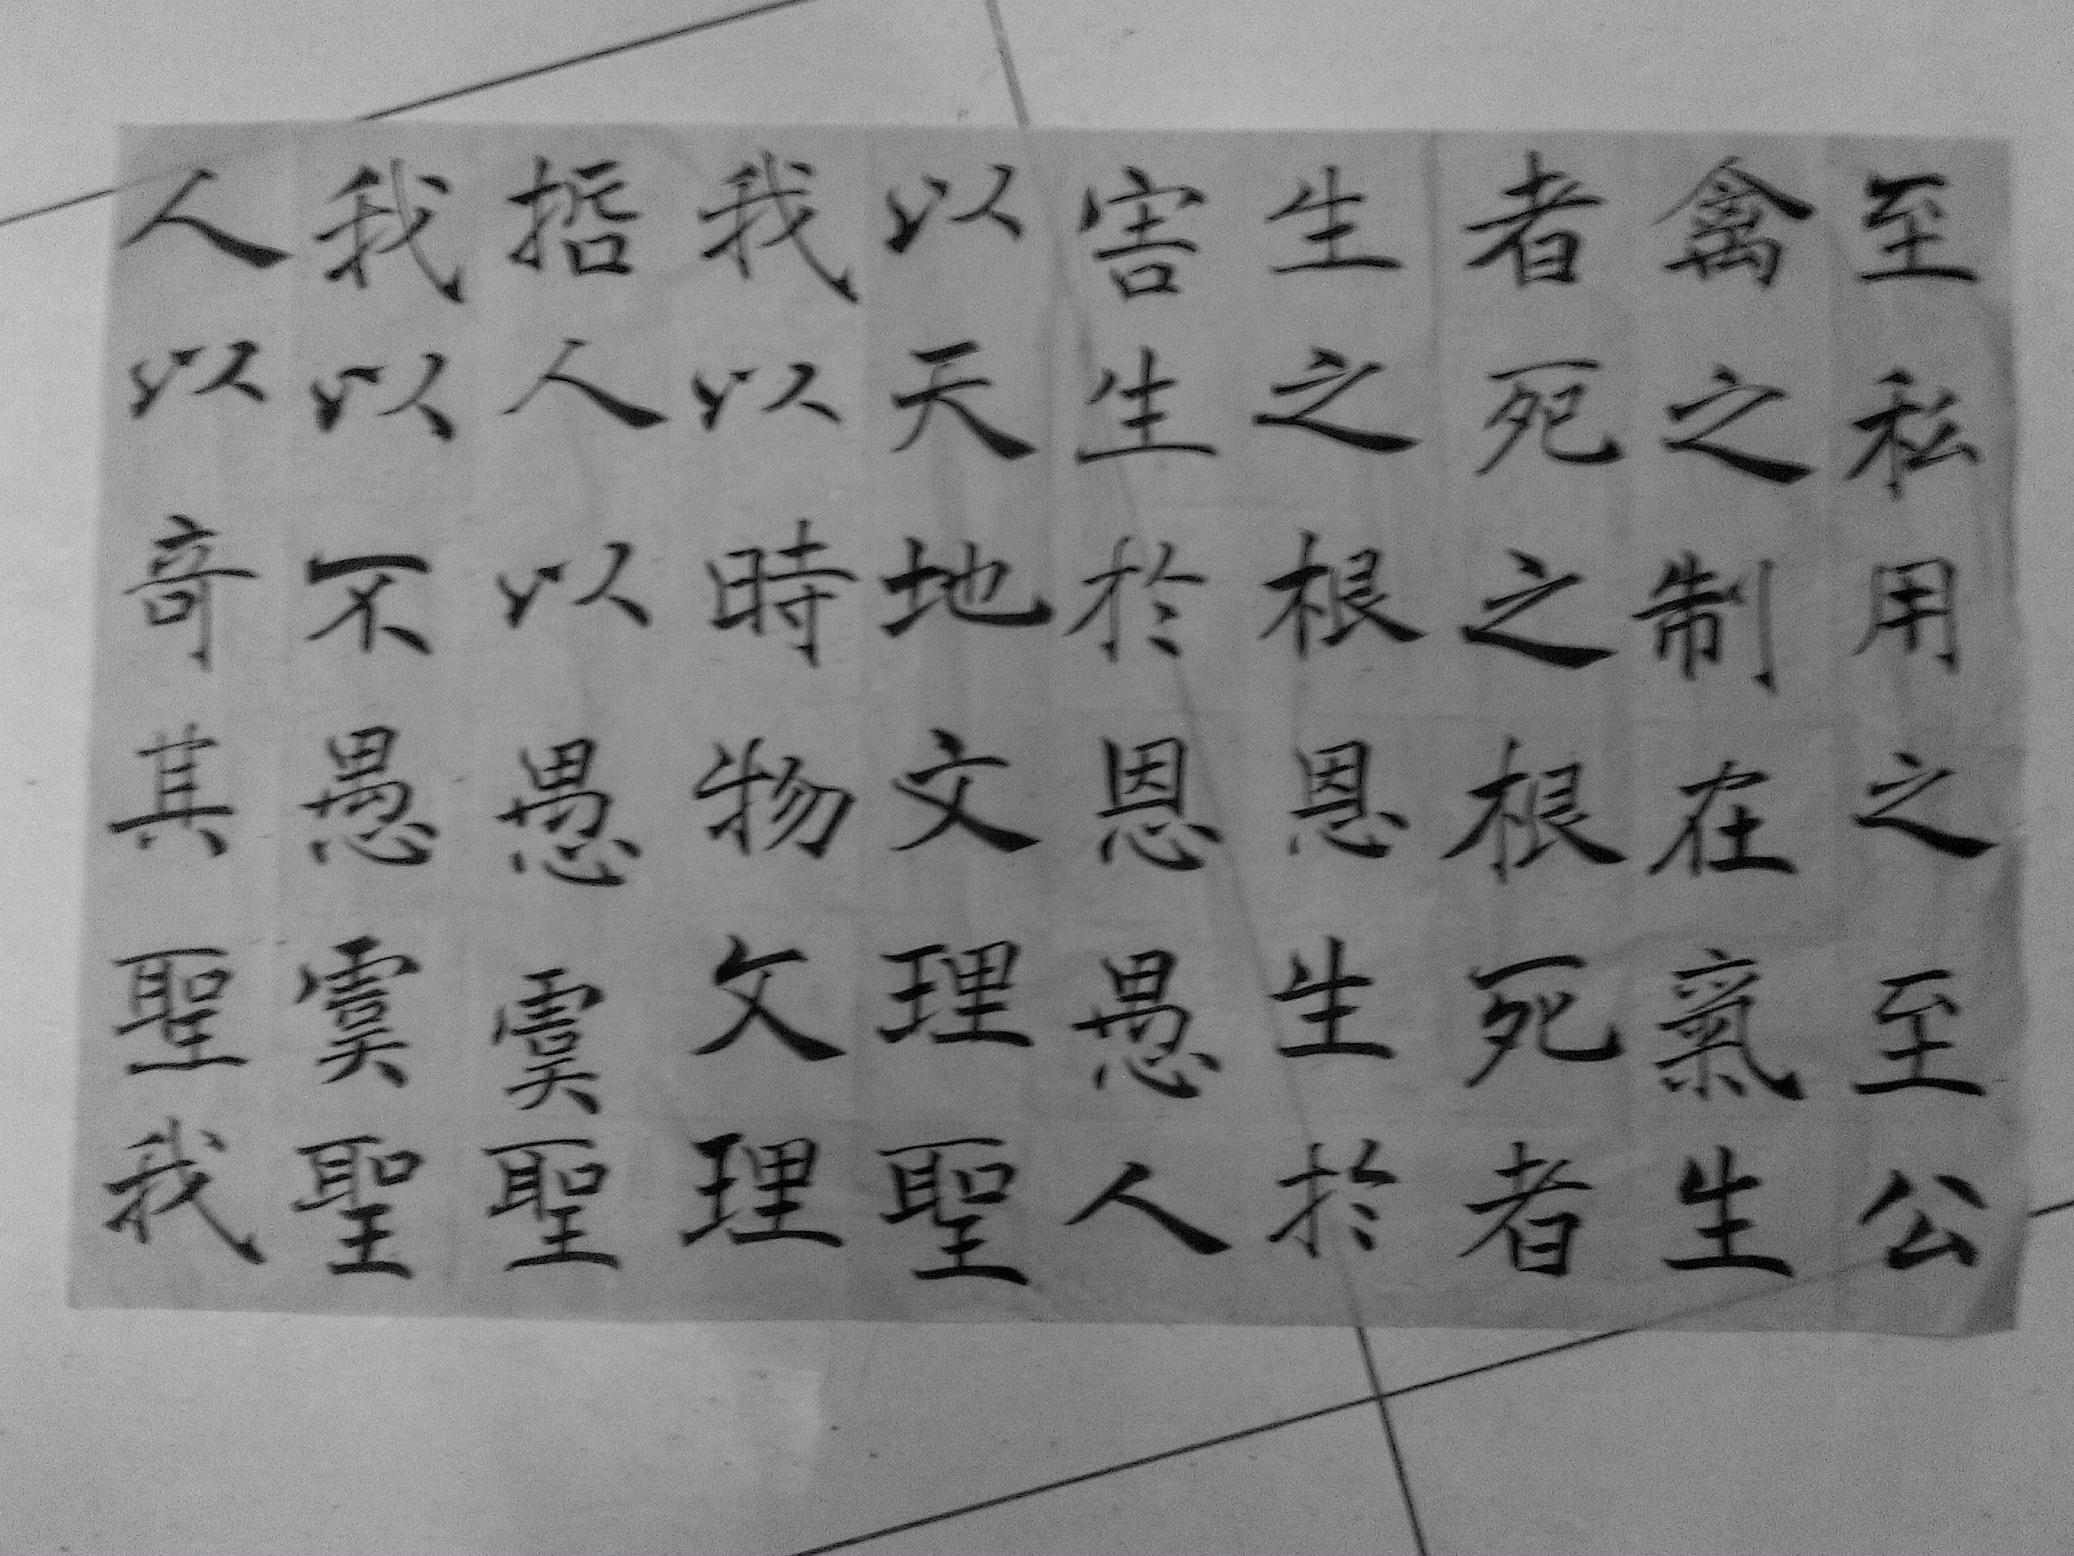 至私用之至公
禽之制在氣生
者死之根死者
生之根恩生於
害生於恩愚人
以天地文理聖
我以時物文理
哲人以愚虞聖
我以不愚虞聖
人以奇其聖我